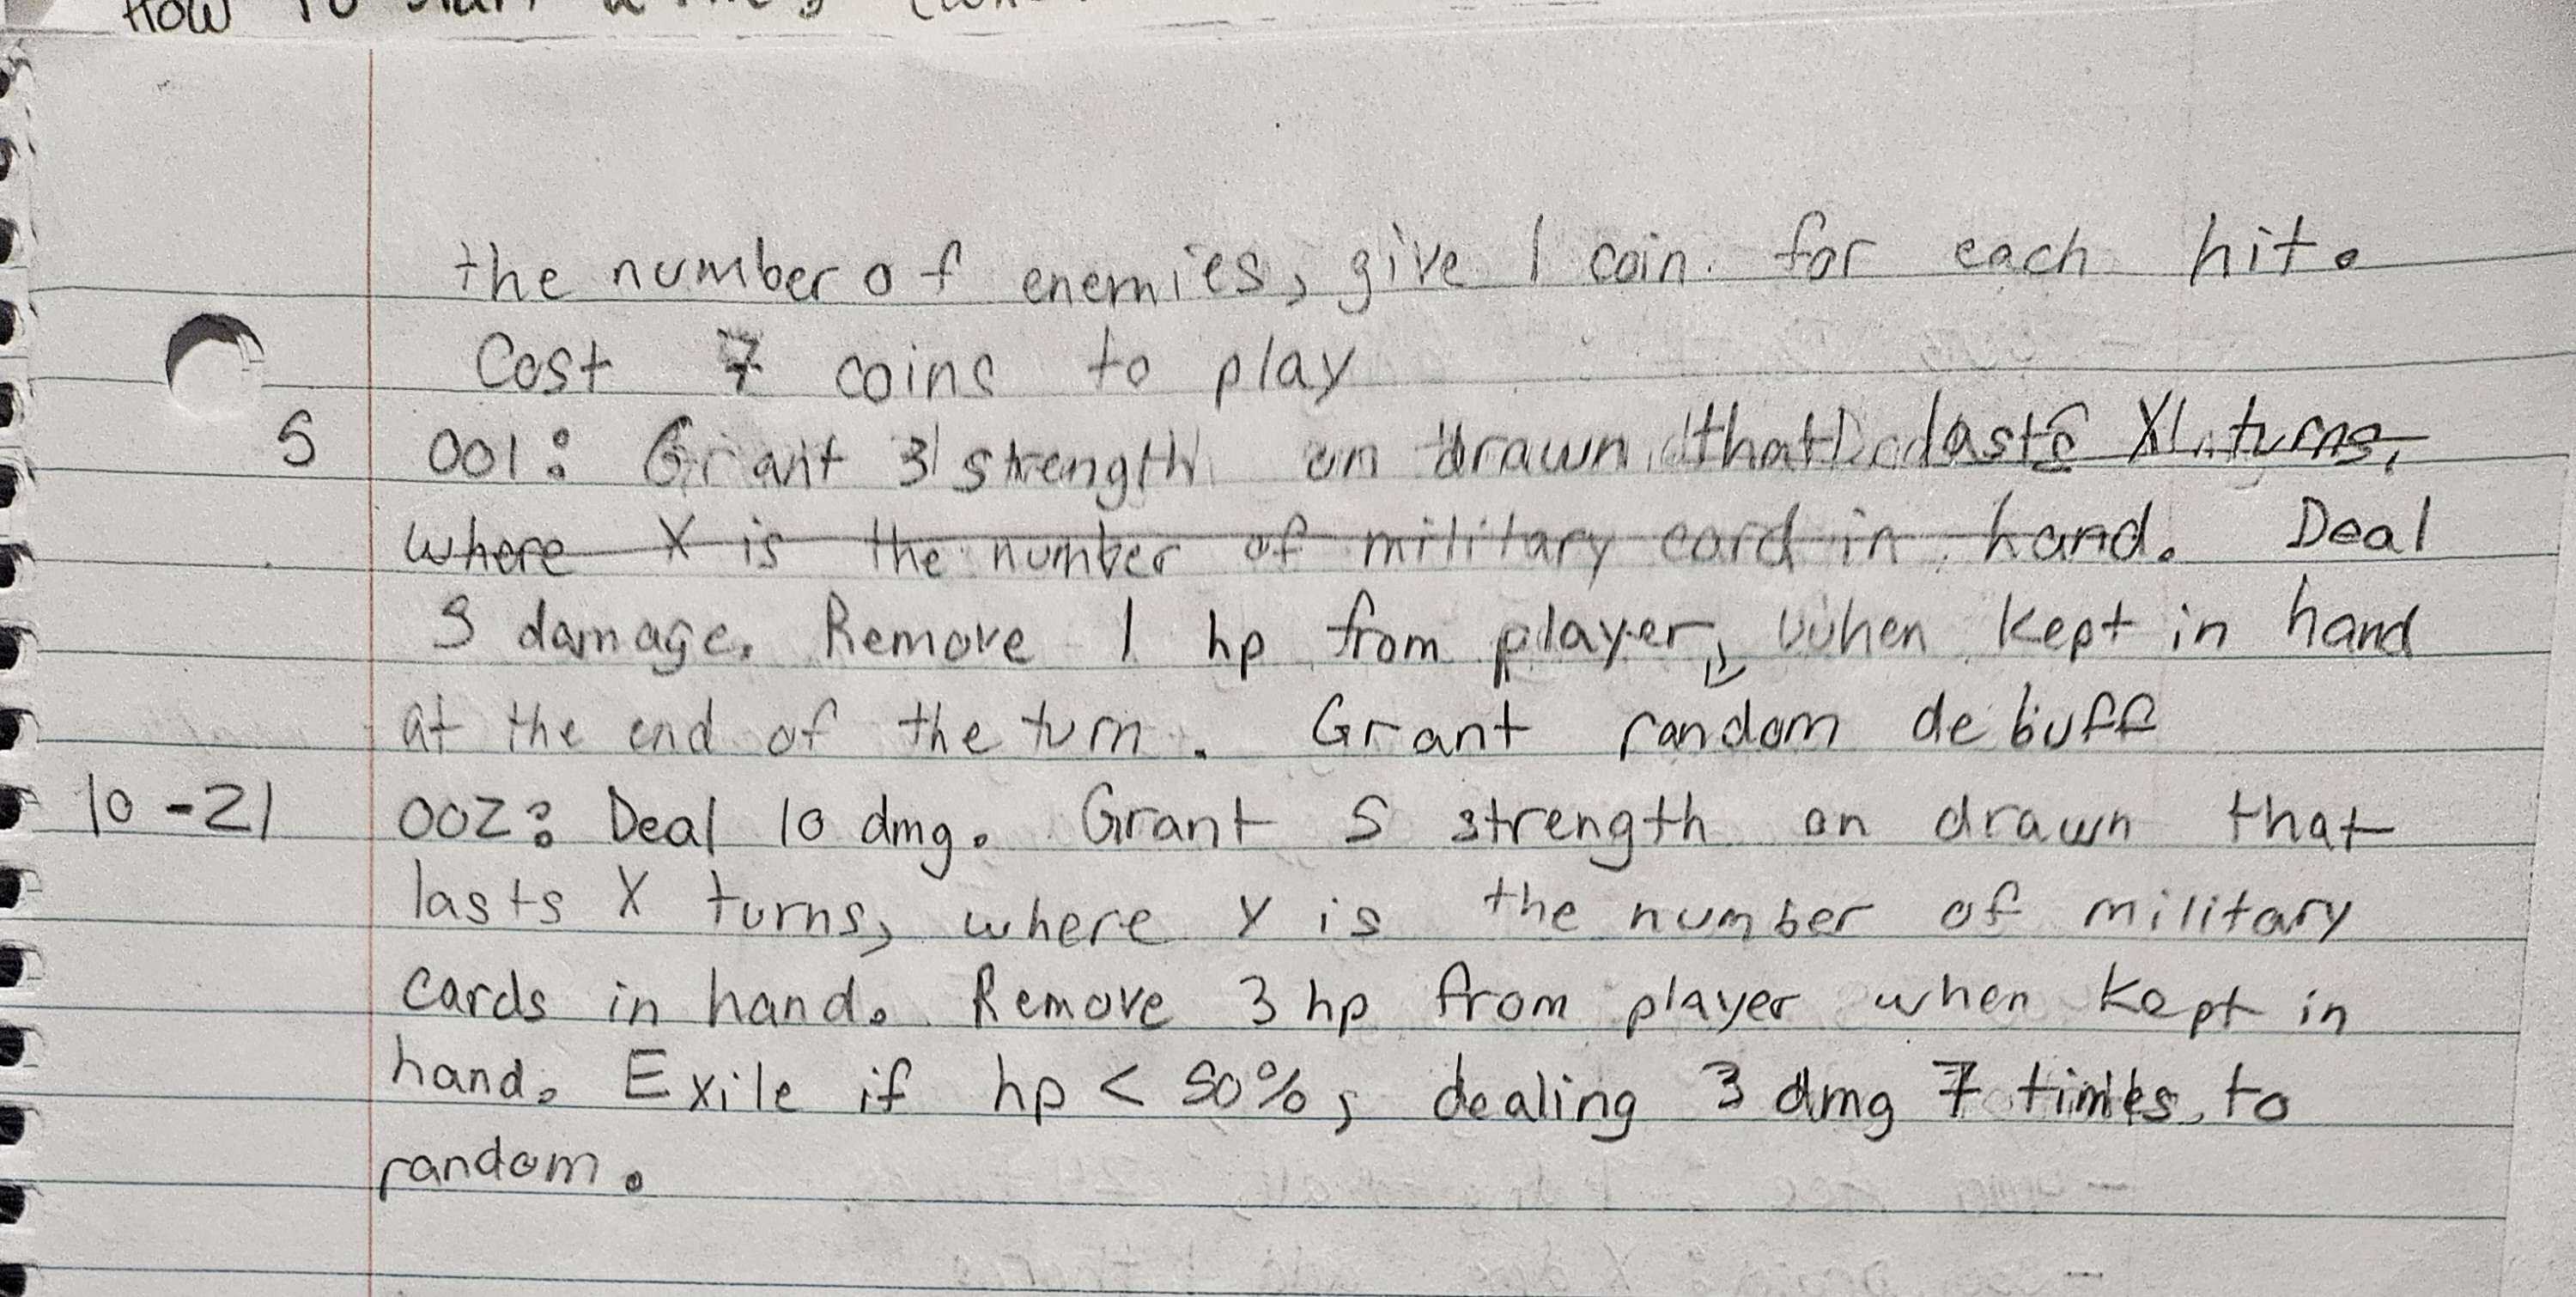 How to start a
the number of enemies, give 1 coin for each hit.
Cost 7 coins to play
5 001: Grant 3 strength on drawn that lasts X turns,
where X is the number of military card in hand. Deal
5 damage. Remove 1 hp from player, when kept in hand
at the end of the turn. Grant random debuff
10-21 002: Deal 10 dmg. Grant 5 strength on drawn that
lasts X turns, where X is the number of military
cards in hand. Remove 3 hp from player when kept in
hand. Exile if hp < 50%, dealing 3 dmg 7 times to
random.